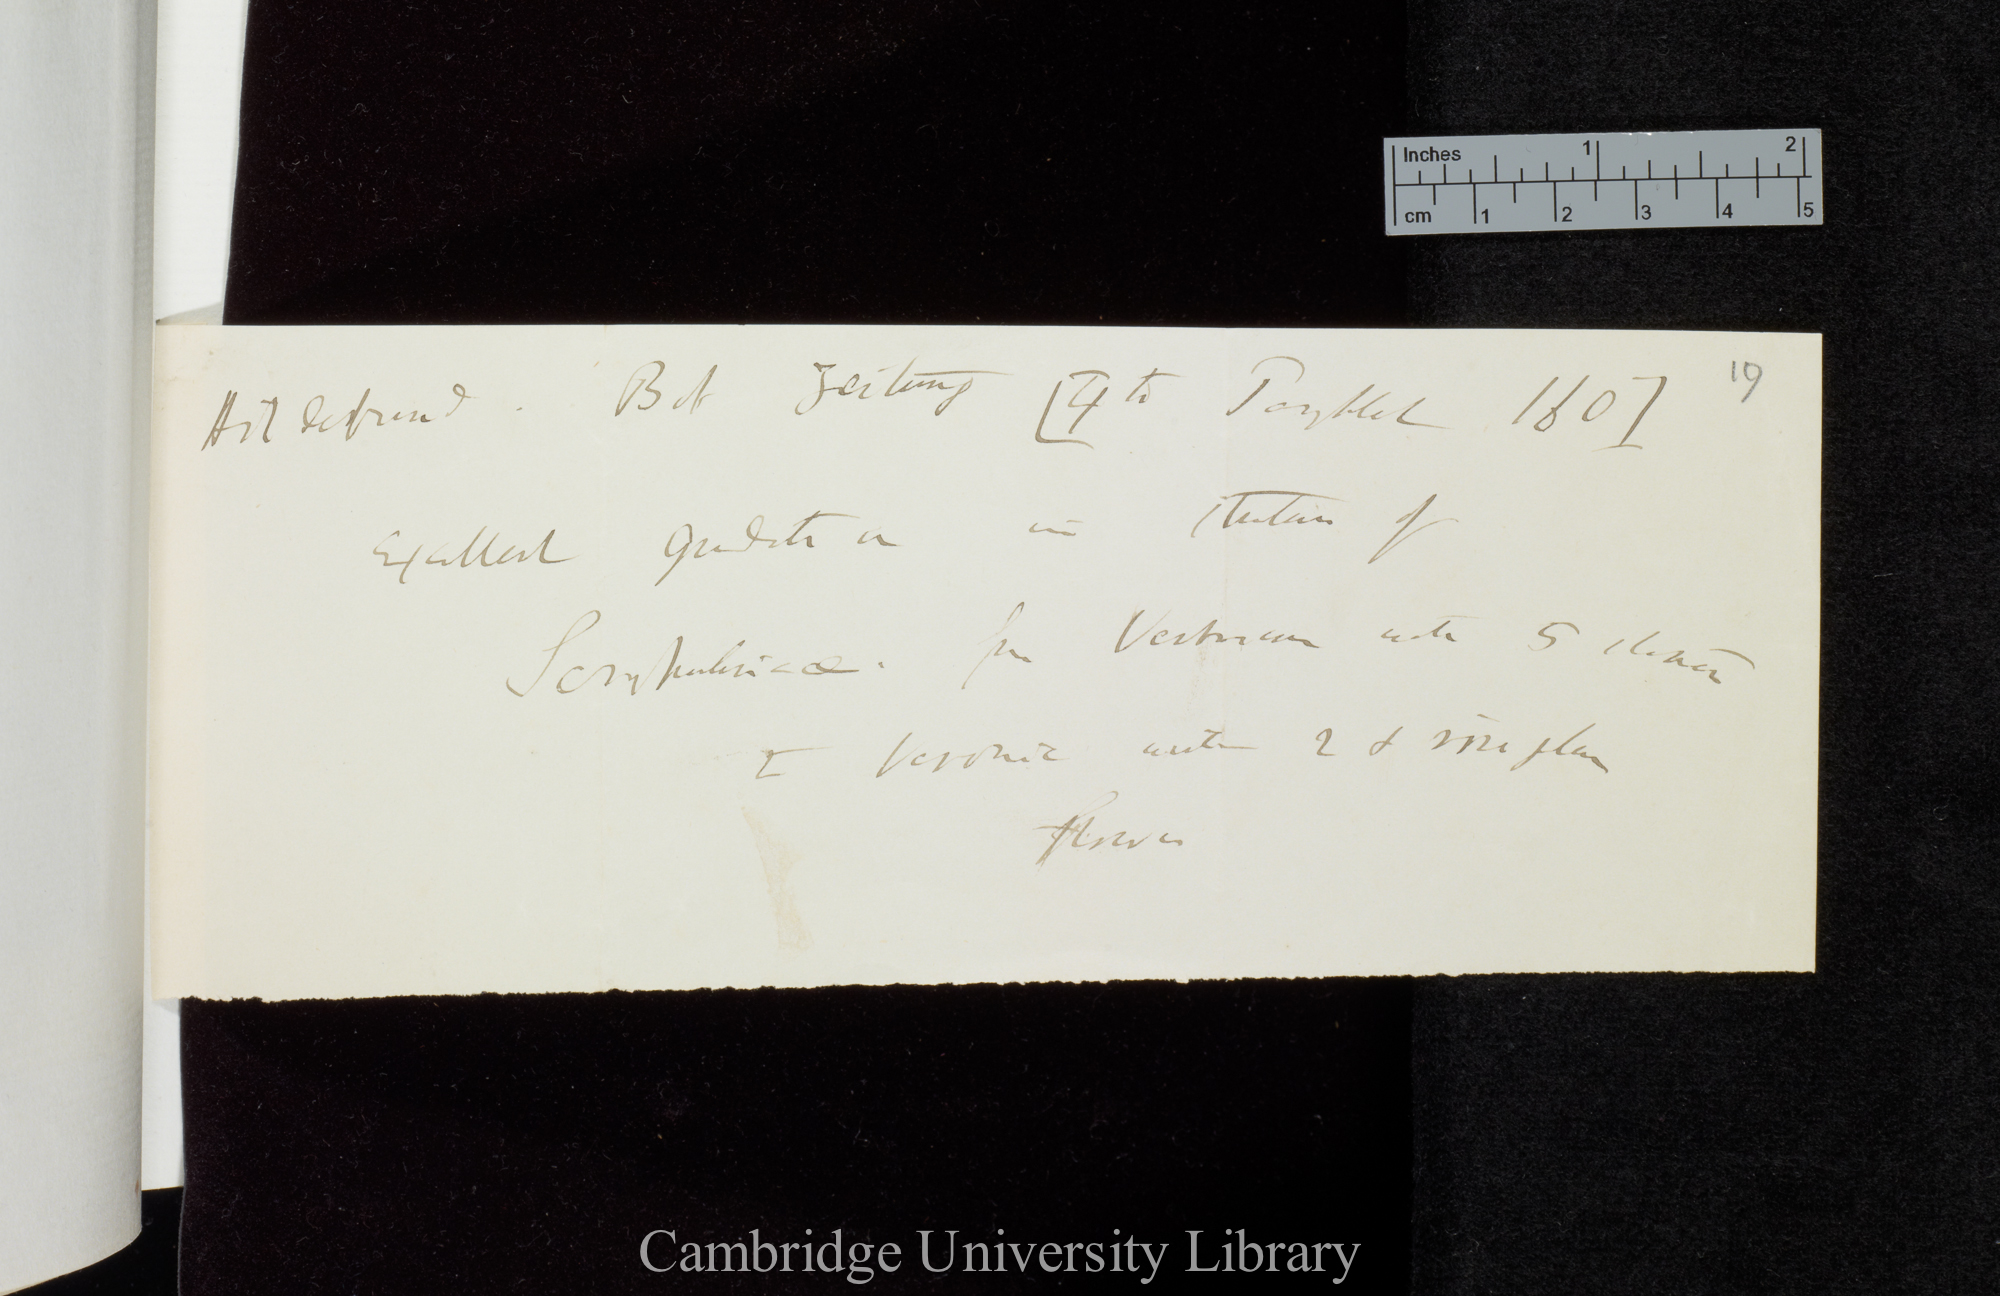 Inches 1 2
cm 1 2 3 4 5
19
Hildebrand. Bot Zeitung [4to Pamphlet 160]
Excellent gradation in structure of
Scrophulariaceae. from Verbascum with 5 stamens
to Veronica with 2 &
flowers
Cambridge University Library